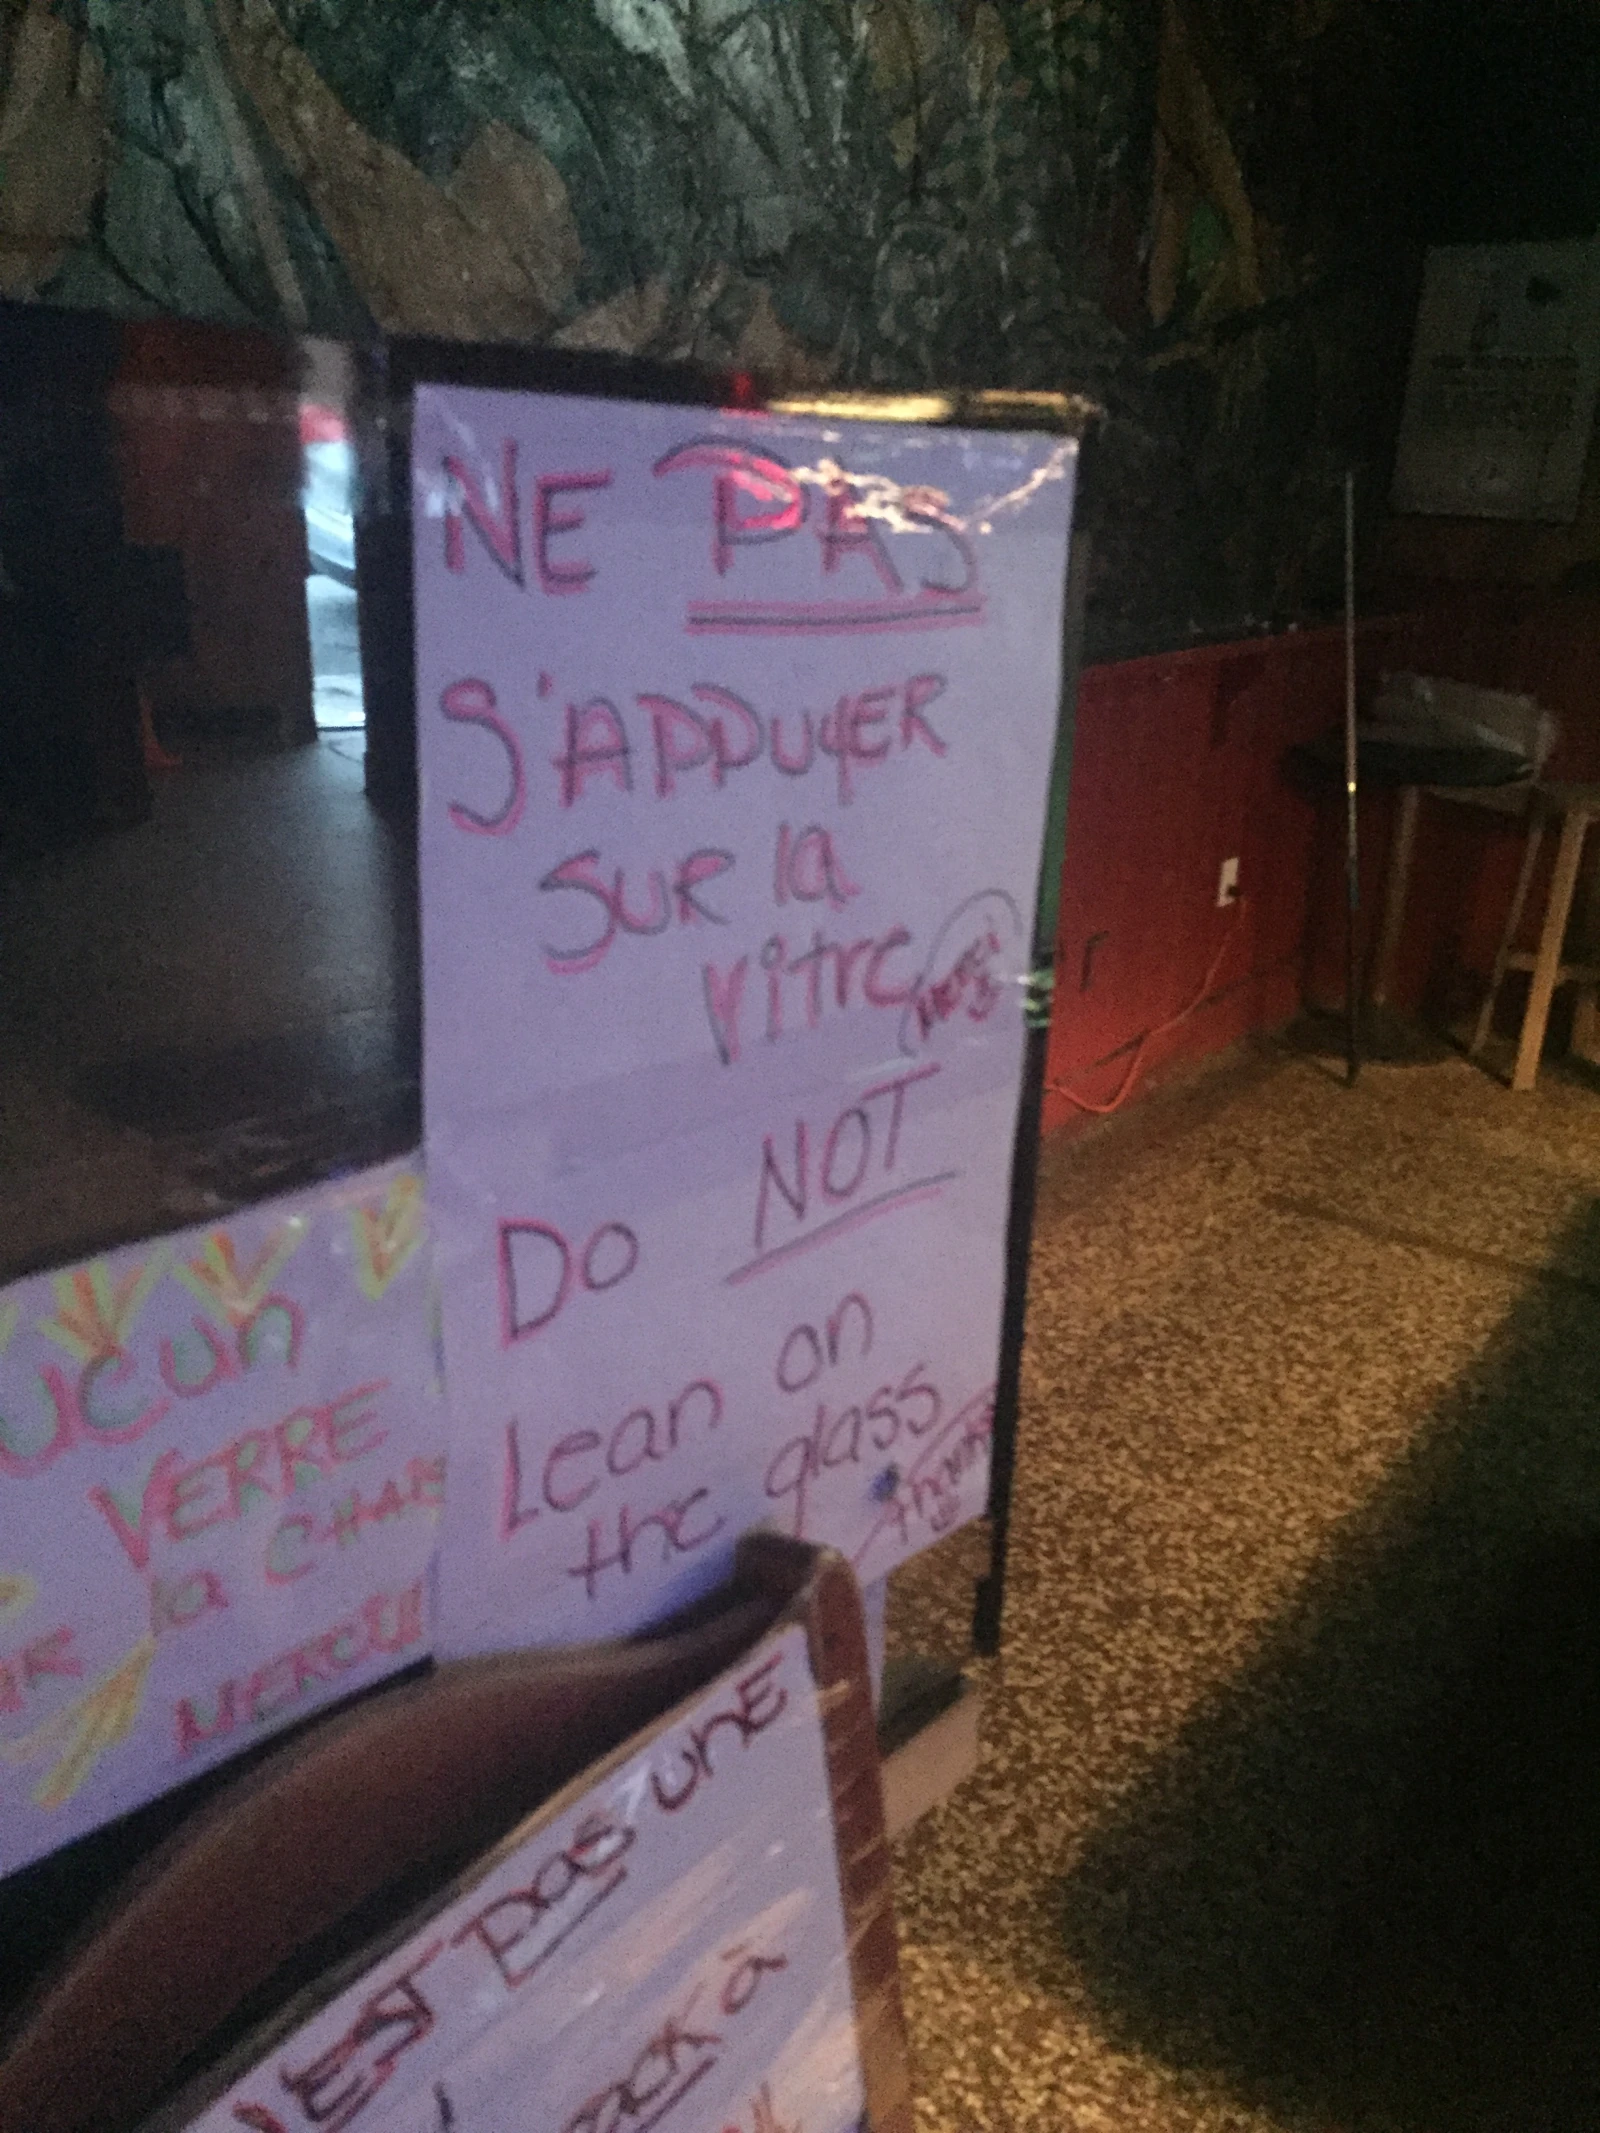 NE PAS
S'APPUYER
SUR la
vitre
MERCI
Do NOT
Lean on
the glass
thanks
ucun
VERRE
la CHA
MERCI!!
EST pas unE
à